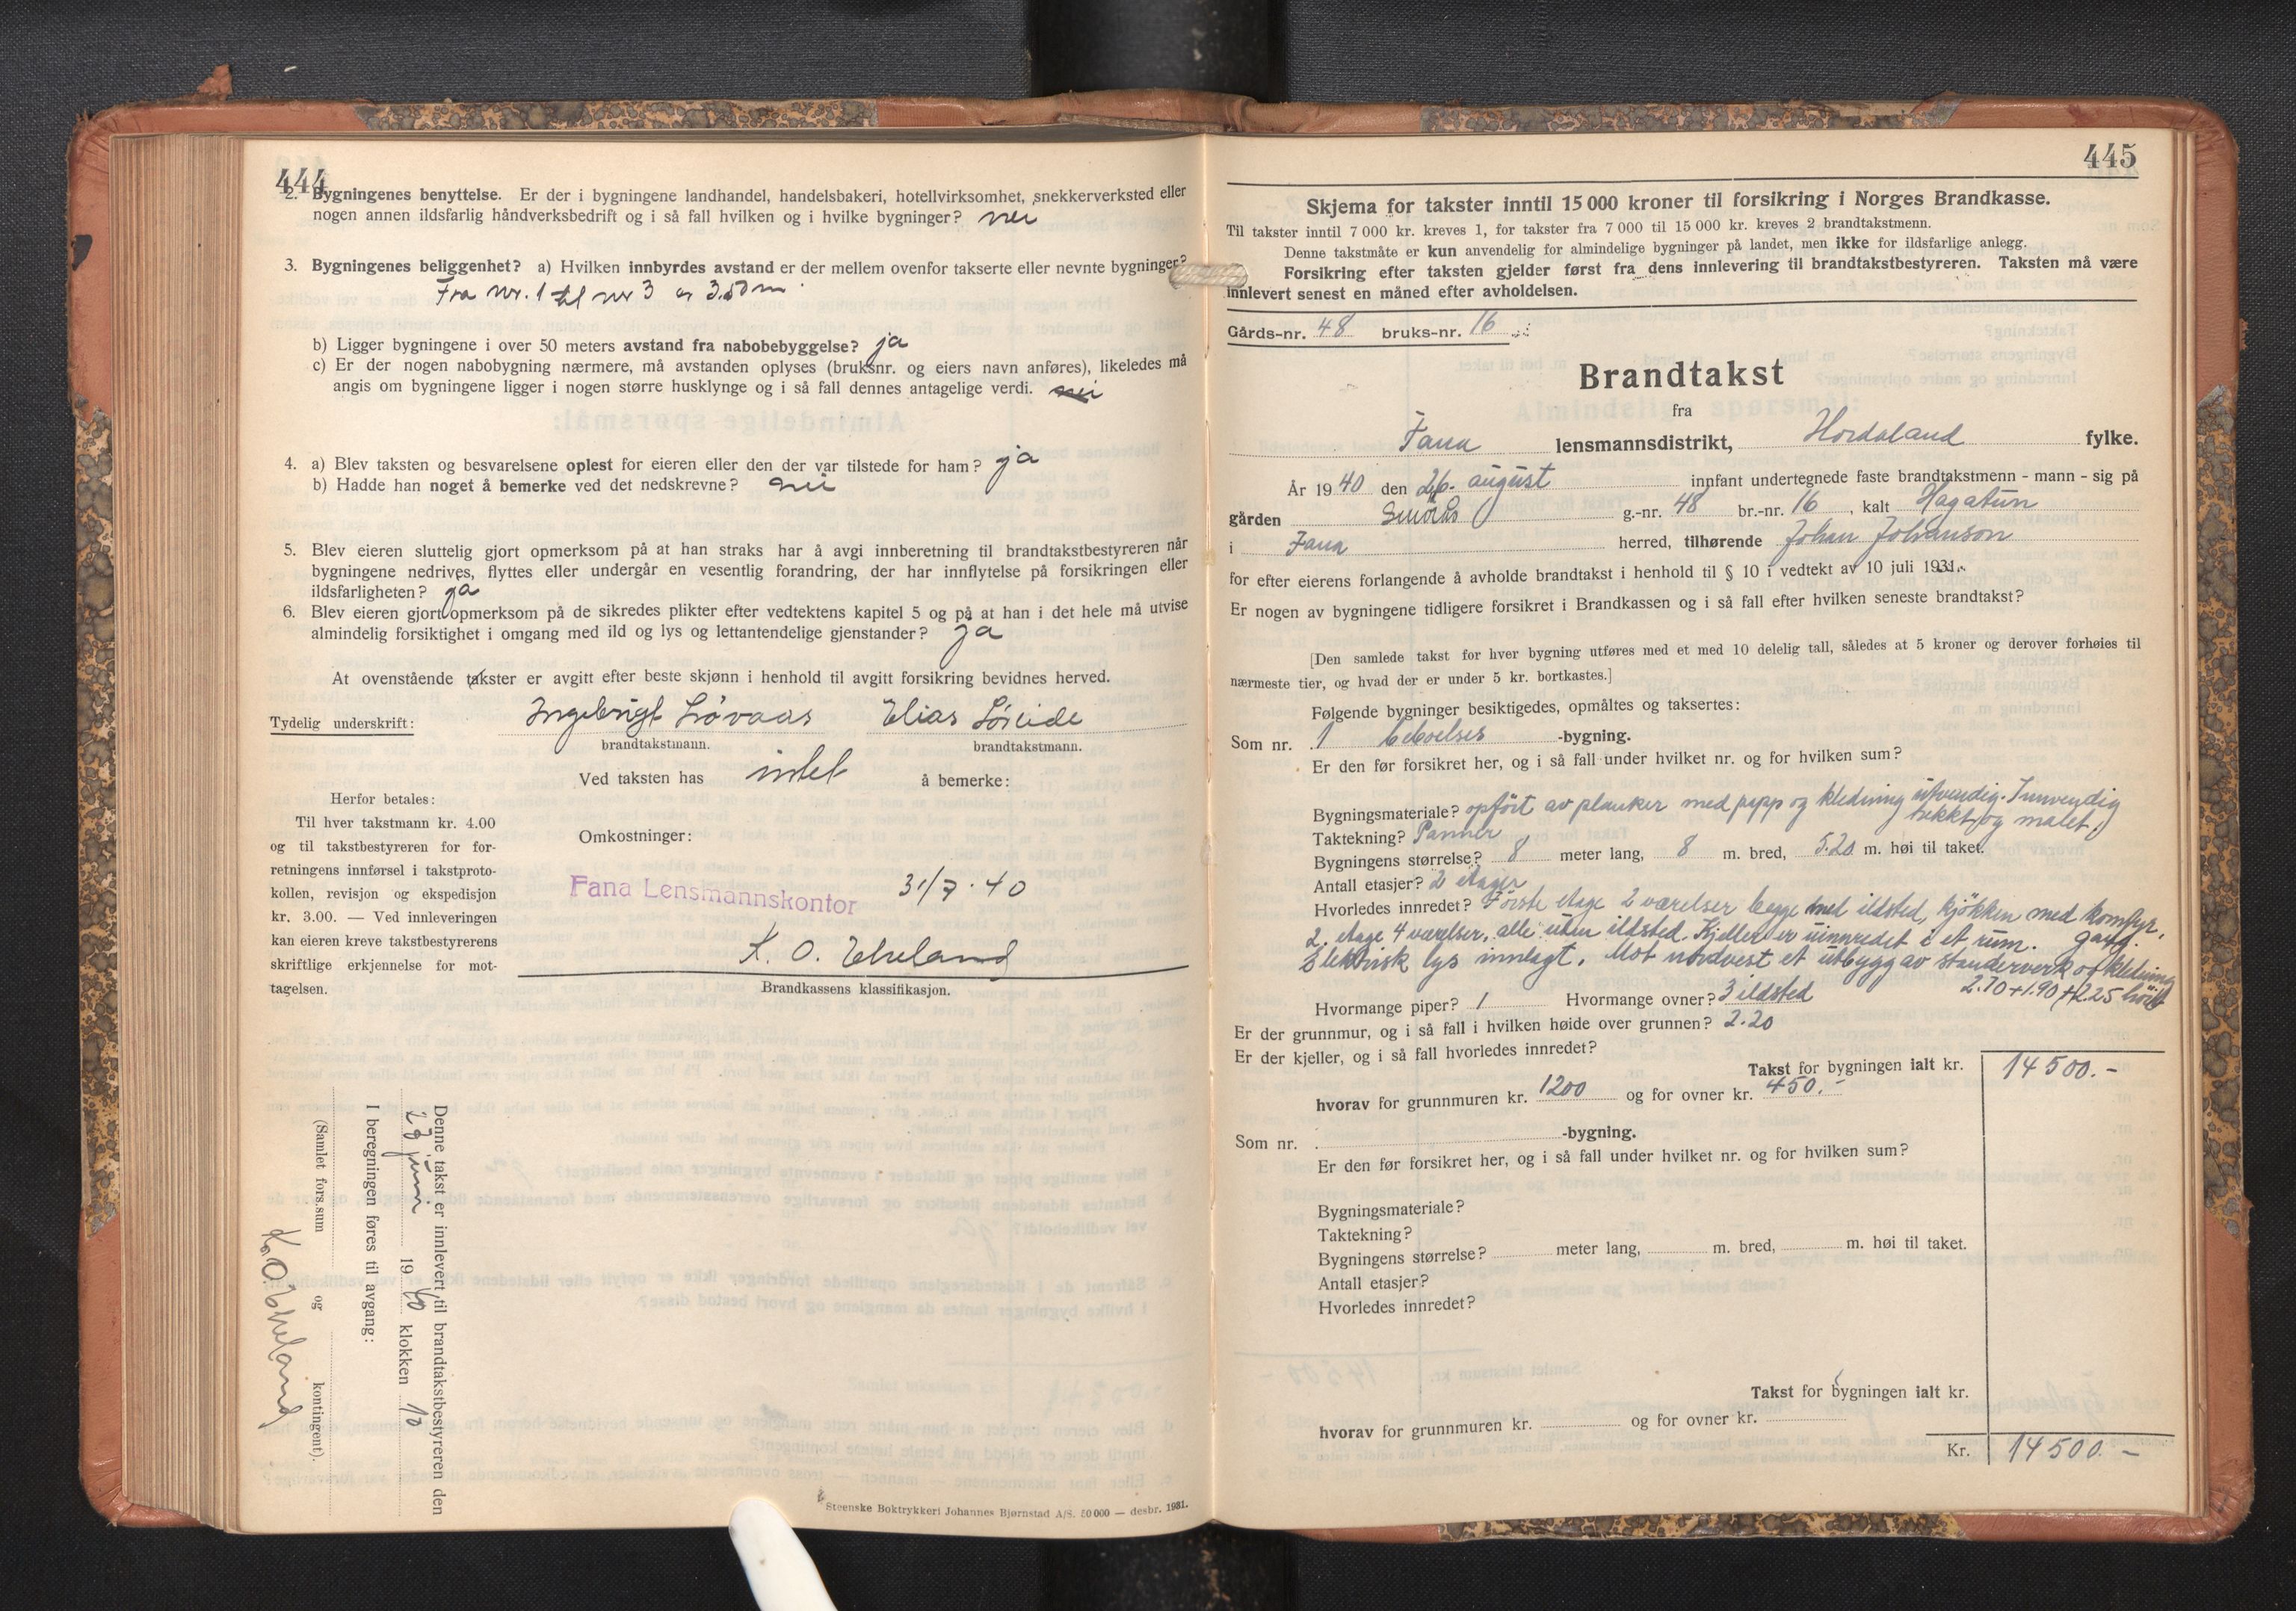 444
2. Bygningenes benyttelse. Er der i bygningene landhandel, handelsbakeri, hotellvirksomhet, snekkerverksted eller
nogen annen ildsfarlig håndverksbedrift og i så fall hvilken og i hvilke bygninger? nei
3. Bygningenes beliggenhet? a) Hvilken innbyrdes avstand er der mellem ovenfor takserte eller nevnte bygninger?
Fra nr. 1 til nr 3 er 3.50 m.
b) Ligger bygningene i over 50 meters avstand fra nabobebyggelse? ja
c) Er der nogen nabobygning nærmere, må avstanden oplyses (bruksnr. og eiers navn anføres), likeledes må
angis om bygningene ligger i nogen større husklynge og i så fall dennes antagelige verdi. nei
4. a) Blev taksten og besvarelsene oplest for eieren eller den der var tilstede for ham? ja
b) Hadde han noget å bemerke ved det nedskrevne? nei
5. Blev eieren sluttelig gjort opmerksom på at han straks har å avgi innberetning til brandtakstbestyreren når
bygningene nedrives, flyttes eller undergår en vesentlig forandring, der har innflytelse på forsikringen eller
ildsfarligheten? ja
6. Blev eieren gjort opmerksom på de sikredes plikter efter vedtektens kapitel 5 og på at han i det hele må utvise
almindelig forsiktighet i omgang med ild og lys og lettantendelige gjenstander? ja
At ovenstående takster er avgitt efter beste skjønn i henhold til avgitt forsikring bevidnes herved.
Tydelig underskrift: Ingebrigt Løvaas Elias Løseide
brandtakstmann. brandtakstmann.
Ved taksten has intet å bemerke:
Herfor betales:
Til hver takstmann kr. 4.00
og til takstbestyreren for for-
retningens innførsel i takstproto-
kollen, revisjon og ekspedisjon
kr. 3.00. — Ved innleveringen
kan eieren kreve takstbestyrerens
skriftlige erkjennelse for mot-
tagelsen.
Omkostninger:
Fana Lensmannskontor 31/7.40
K. O. Ekeland
Brandkassens klassifikasjon.
Denne takst er innlevert til brandtakstbestyreren den
29 juni 1940 klokken 10
I beregningen føres til avgang:
(Samlet fors.sum og kontingent).
K. O. Ekeland
Steenske Boktrykkeri Johannes Bjørnstad A/S. 50 000 — desbr. 1931.
445
Skjema for takster inntil 15 000 kroner til forsikring i Norges Brandkasse.
Til takster inntil 7 000 kr. kreves 1, for takster fra 7 000 til 15 000 kr. kreves 2 brandtakstmenn.
Denne takstmåte er kun anvendelig for almindelige bygninger på landet, men ikke for ildsfarlige anlegg.
Forsikring efter taksten gjelder først fra dens innlevering til brandtakstbestyreren. Taksten må være
innlevert senest en måned efter avholdelsen.
Gårds-nr. 48 bruks-nr. 16
Brandtakst
fra
Fana lensmannsdistrikt, Hordaland fylke.
År 1940 den 26. august innfant undertegnede faste brandtakstmenn - mann - sig på
gården Smörås g.-nr. 48 br.-nr. 16, kalt Hagatun
i Fana herred, tilhørende Johan Johanson
for efter eierens forlangende å avholde brandtakst i henhold til § 10 i vedtekt av 10 juli 1931.
Er nogen av bygningene tidligere forsikret i Brandkassen og i så fall efter hvilken seneste brandtakst?
[Den samlede takst for hver bygning utføres med et med 10 delelig tall, således at 5 kroner og derover forhøies til
nærmeste tier, og hvad der er under 5 kr. bortkastes.]
Følgende bygninger besiktigedes, opmåltes og taksertes:
Som nr. 1 beboelses -bygning.
Er den før forsikret her, og i så fall under hvilket nr. og for hvilken sum?
Bygningsmateriale? opført av planker med papp og kledning utvendig. Innvendig
trekkt og malet.
Taktekning? Panner
Bygningens størrelse? 8 meter lang, 8 m. bred, 5.20 m. høi til taket.
Antall etasjer? 2 etager
Hvorledes innredet? Første etage 2 værelser begge med ildsted, kjøkken med komfyr,
2. etage 4 værelser, alle uten ildsted. Kjeller er uinnredet i et rum. gang.
Elektrisk lys innlagt. Mot nordvest et utbygg av standerverk og kledning
2.70+1.90+2.25 høit
Hvormange piper? 1 Hvormange ovner? 3 ildsted
Er der grunnmur, og i så fall i hvilken høide over grunnen? 2.20
Er der kjeller, og i så fall hvorledes innredet?
Takst for bygningen ialt kr. 14500.-
hvorav for grunnmuren kr. 1200 og for ovner kr. 450.-
Som nr. -bygning.
Er den før forsikret her, og i så fall under hvilket nr. og for hvilken sum?
Bygningsmateriale?
Taktekning?
Bygningens størrelse? meter lang, m. bred, m. høi til taket.
Antall etasjer?
Hvorledes innredet?
Takst for bygningen ialt kr.
hvorav for grunnmuren kr. og for ovner kr.
Kr. 14500.-